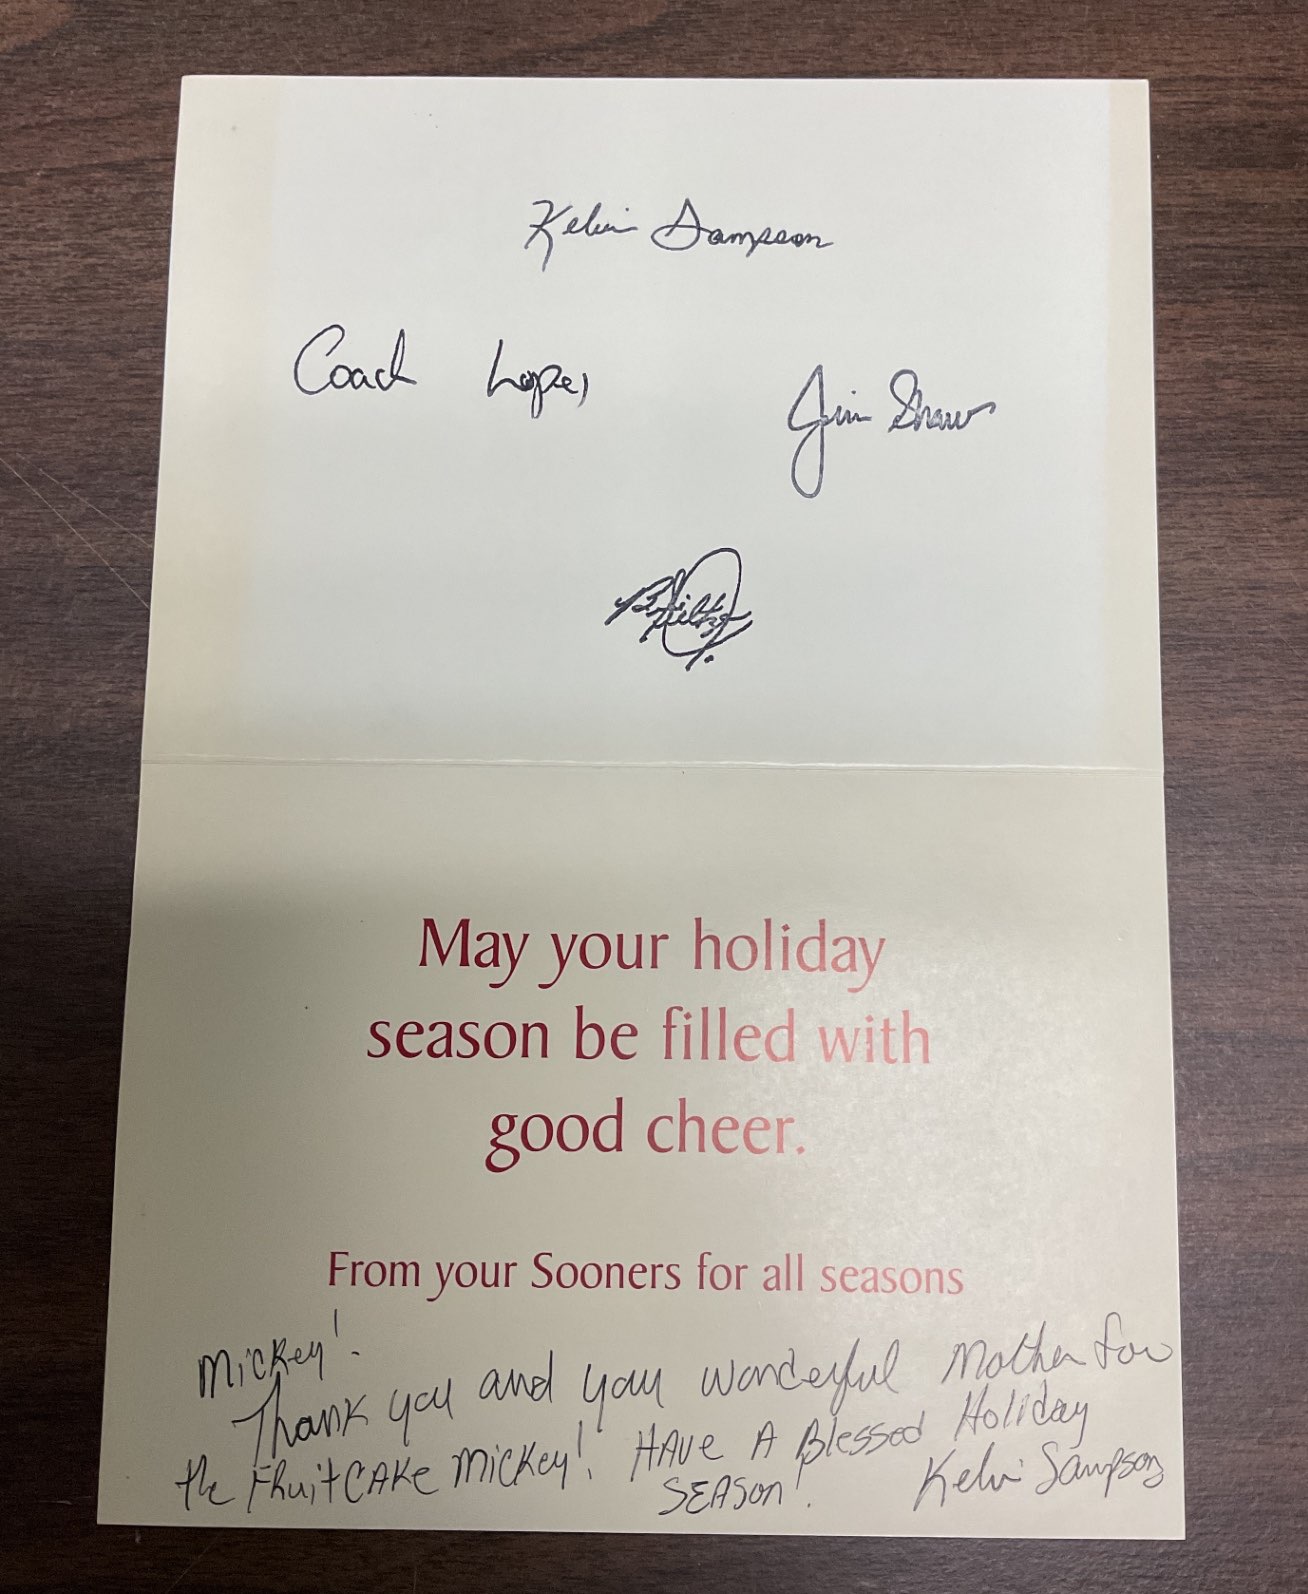 Kelvin Sampson
Coach Lopez
Jim Shaw
May your holiday
season be filled with
good cheer.
From your Sooners for all seasons
Mickey!
Thank you and your wonderful Mother for
the FRuitCAKe Mickey! HAve A Blessed Holiday
SEASon! Kelvin Sampson